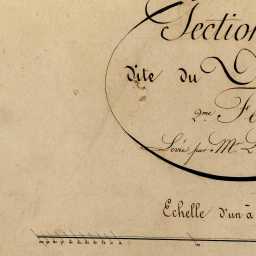 Section
dite du
2me Fe
Levée par Mr
Echelle d'un à